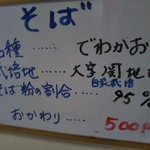 そば
品種……でわかお
栽培地……大字関地
自家栽培
そば粉の割合……95%
おかわり……500